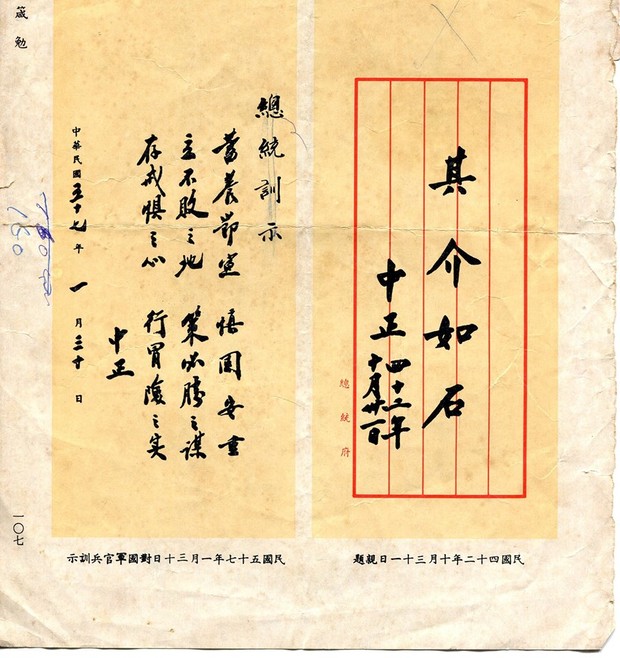 其介如石
中正 四十二年
十月卅一日
總統府
民國四十二年十月三十一日親題
總統訓示
蓄養節宣 慎固安重
立不敗之地 策必勝之謀
存戒懼之心 行冒險之實
中正
中華民國五十七年一月三十日
民國五十七年一月三十日對國軍官兵訓示
箴勉
一〇七